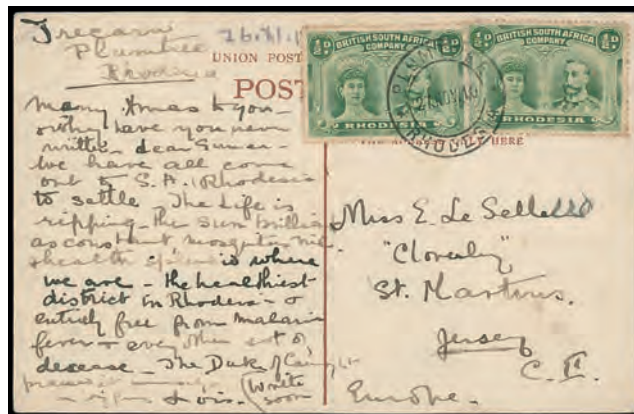 Tregarn
Plumtree
Rhodesia
UNION POST
POST
BRITISH SOUTH AFRICA
COMPANY
½d ½d
RHODESIA
BRITISH SOUTH AFRICA
COMPANY
½d ½d
RHODESIA
RHODESIA
HERE
Many Xmas to you
why have you never
written dear
We have all come
out to S.A. (Rhodesia
to settle. The life is
ripping - the sun
as constant, mosquitos
health is where
we are - the healthiest
district in Rhodesia - &
entirely free from malaria
fever & every other sort of
desease - The Duke of
(Write
soon
Lois.
Miss E. Le
"Cloverly"
St. Martins.
Jersey
C. I.
Europe.